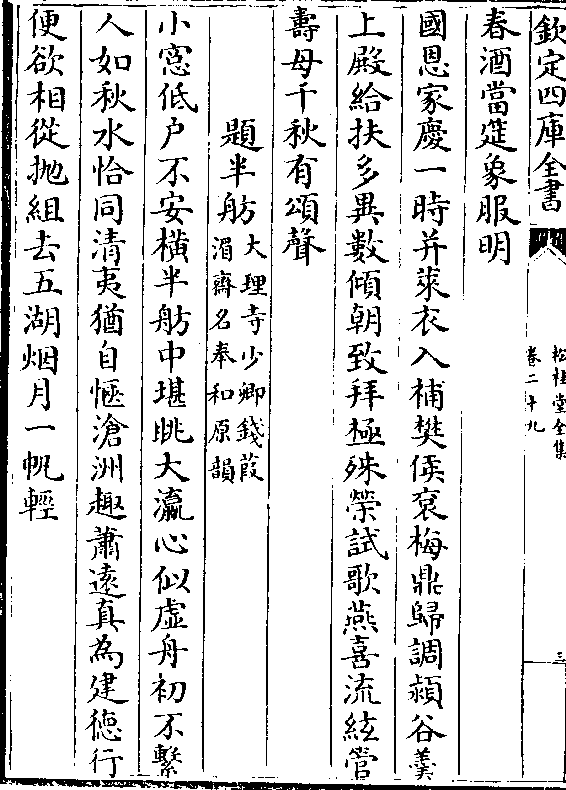 欽定四庫全書
松桂堂全集
卷二十九
三
春酒當筵象服明
國恩家慶一時并萊衣入補樊侯袞梅鼎歸調潁谷羹
上殿給扶多異數傾朝致拜極殊榮試歌燕喜流絃管
壽母千秋有頌聲
題半舫大理寺少卿錢葭
湄齋名奉和原韻
小窓低户不安橫半舫中堪眺大瀛心似虚舟初不繫
人如秋水恰同清夷猶自愜滄洲趣蕭遠真為建德行
便欲相從抛組去五湖烟月一帆輕